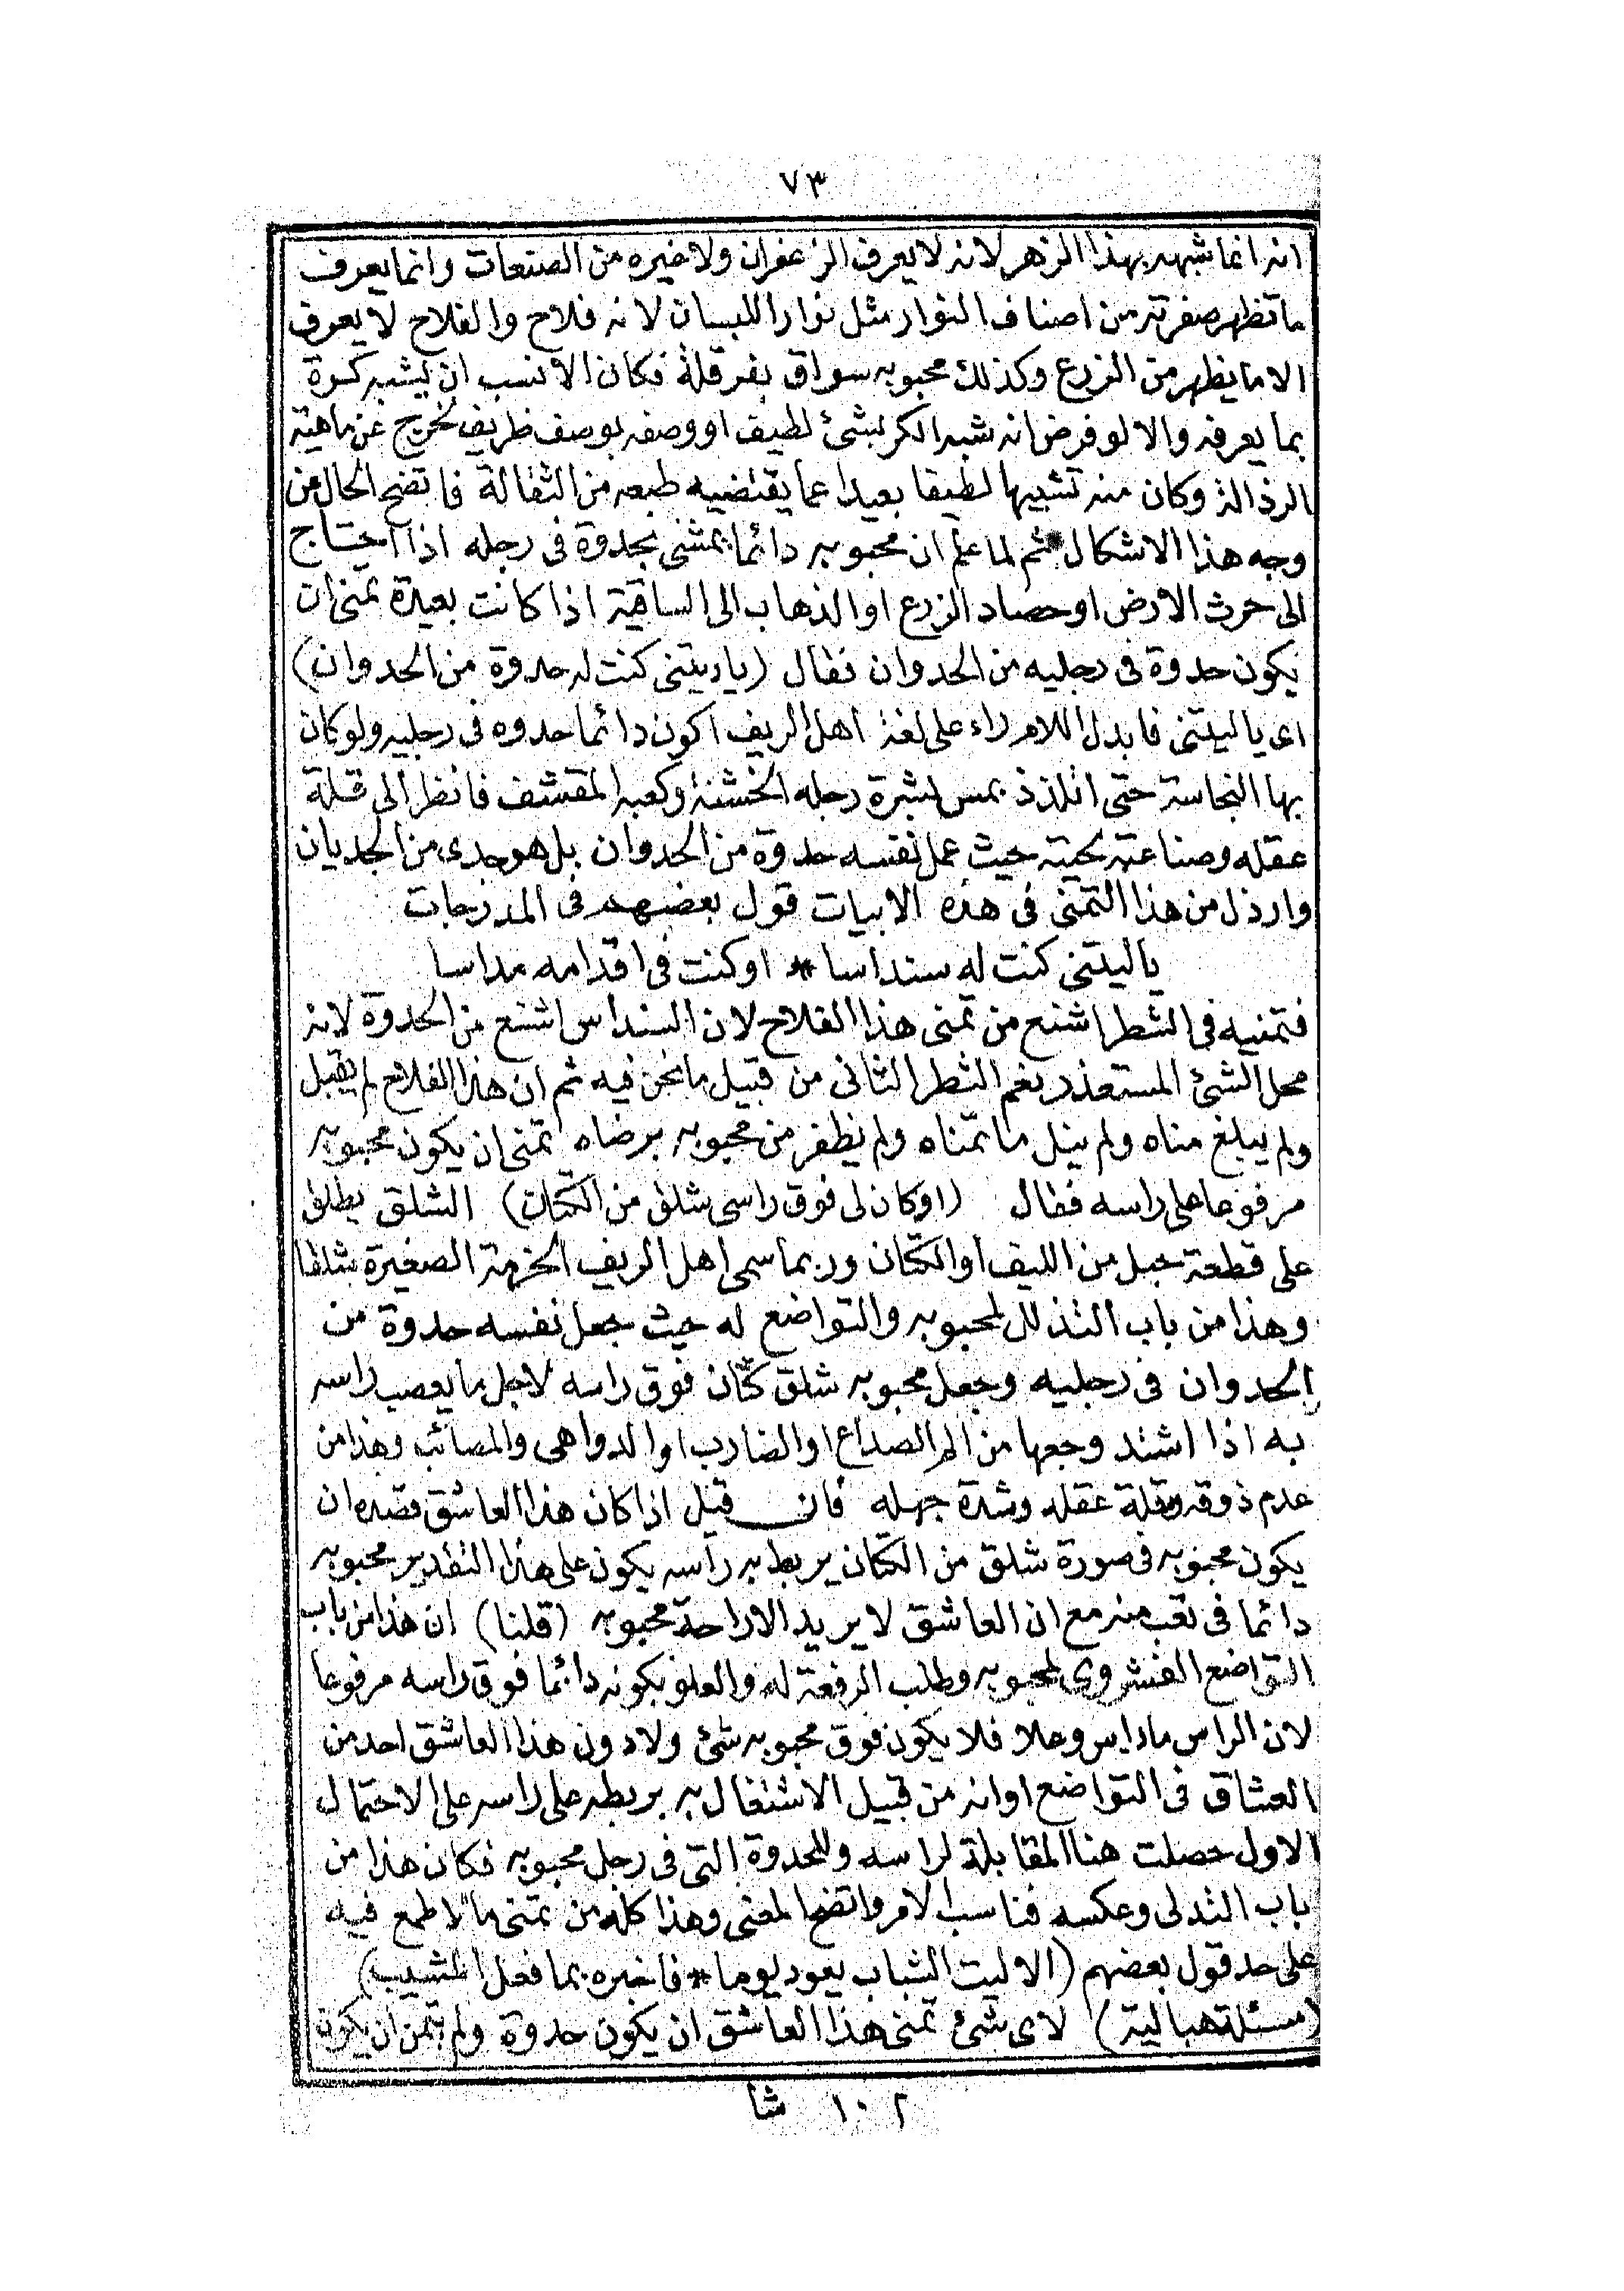 ٧٣
انه انما شبهه بهذا الزهر لانه لا يعرف الزعفران ولا غيره من الصنعات وانما يعرف
ما تظهر صفرته من اصناف النوار مثل نوار اللبسان لانه فلاح والفلاح لا يعرف
الا ما يظهر من الزرع وكذلك محبوبه سواق بفرقلة فكان الانسب ان يشبه كره
بما يعرفه والا لو فرض انه شبه الكر بشئ لطيف او وصفه بوصف ظريف لخرج عن ماهية
الرذالة وكان منه تشبيها لطيفا بعيدا عما يقتضيه طبعه من الثقالة فاتضح الحال عن
وجه هذا الاشكال ثم لما علم ان محبوبه دائما يمشى بحدوة فى رجله اذا احتاج
الى حرث الارض او حصاد الزرع او الذهاب الى الساقية اذا كانت بعيدة تمنى ان
يكون حدوة فى رجليه من الحدوان فقال (ياريتنى كنت له حدوة من الحدوان)
اى ياليتنى فابدل اللام راء على لغة اهل الريف اكون دائما حدوه فى رجليه ولو كان
بها النجاسة حتى اتلذذ بمس بشرة رجله الخشنة وكعبه المقشف فانظر الى قلة
عقله وصناعته حيث عمل نفسه حدوة من الحدوان بل هو جدى من الجديان
وارذل من هذا التمنى فى هذه الابيات قول بعضهم فى المدرجات
ياليتنى كنت له سنداسا * او كنت فى اقدامه مداسا
فتمنيه فى الشطر اشنع من تمنى هذا الفلاح لان السنداس اشنع من الحدوة لانه
محل الشئ المستعذر نعم الشطر الثانى من قبيل ما نحن فيه ثم ان هذا الفلاح لم يقبل
ولم يبلغ مناه ولم ينل ما تمناه ولم يظفر من محبوبه برضاه تمنى ان يكون محبوبه
مرفوعا على راسه فقال (او كان لى فوق راسى شلق من الكتان) الشلق يطلق
على قطعة حبل من الليف او الكتان وربما سمى اهل الريف الحزمة الصغيرة شلقا
وهذا من باب التذلل لمحبوبه والتواضع له حيث جعل نفسه حدوة من
الحدوان فى رجليه وجعل محبوبه شلق كتان فوق راسه لاجل ما يعصب راسه
به اذا اشتد وجعها من الم الصداع او الضارب او الدواهى والمصائب وهذا من
عدم ذوقه وقلة عقله وشدة جهله فان قيل اذا كان هذا العاشق قصده ان
يكون محبوبه فى صورة شلق من الكتان يربط به راسه يكون على هذا التقدير محبوبه
دائما فى تعب منه مع ان العاشق لا يريد الا راحة محبوبه (قلنا) ان هذا من باب
التواضع الفشروى لمحبوبه وطلب الرفعة له والعلو بكونه دائما فوق راسه مرفوعا
لان الراس ما داس وعلا فلا يكون فوق محبوبه شئ ولا دون هذا العاشق احد من
العشاق فى التواضع او انه من قبيل الاشتغال به بربطه على راسه على الاحتمال
الاول حصلت هنا المقابلة لراسه وللحدوة التى فى رجل محبوبه فكان هذا من
باب التدلى وعكسه فناسب الامر واتضح المعنى وهذا كله من تمنى ما لا طمع فيه
على حد قول بعضهم (الا ليت الشباب يعود يوما * فاخبره بما فعل المشيب)
(مسئلة هبالية) لاى شئ تمنى هذا العاشق ان يكون حدوة ولم يتمن ان يكون
١٠ شا